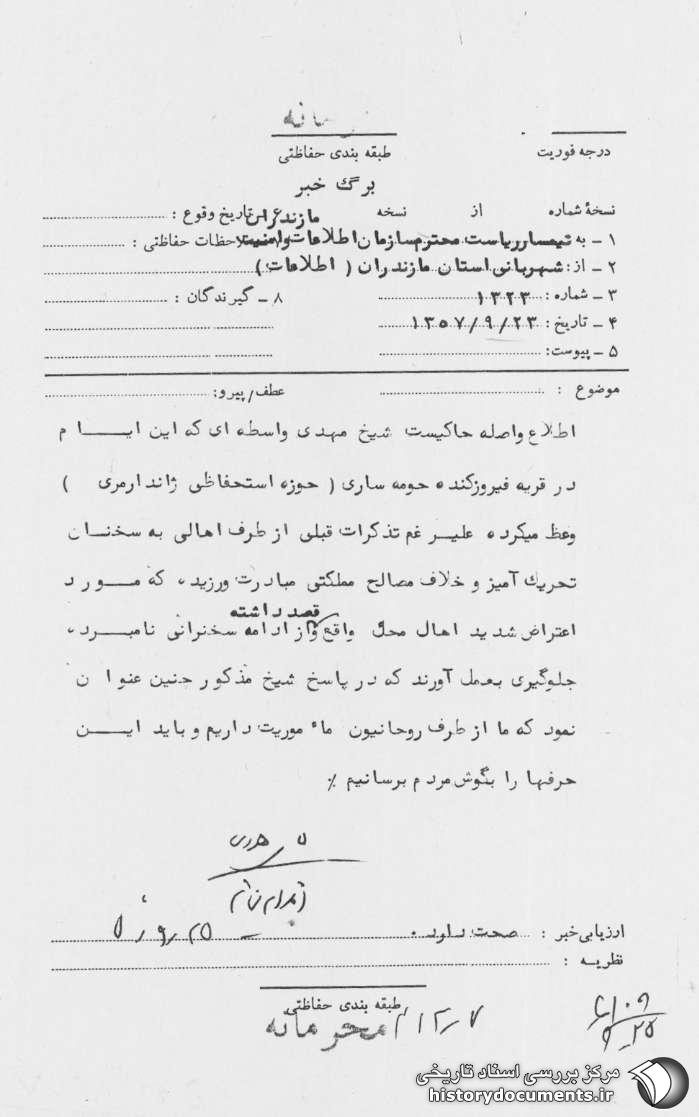 محرمانه
درجه فوریت
طبقه بندی حفاظتی
برگ خبر
نسخهٔ شماره از نسخه
تاریخ وقوع :
مازندران
۱ ـ به تیمسار ریاست محترم سازمان اطلاعات و امنیت
ملاحظات حفاظتی :
۲ ـ از : شهربانی استان مازندران ( اطلاعات )
۳ ـ شماره : ۱۳۲۳
۸ ـ گیرندگان :
۴ ـ تاریخ : ۱۳۵۷/۹/۲۳
۵ ـ پیوست:
موضوع :
عطف/پیرو:
اطلاع واصله حاکیست شیخ مهدی واسطه ای که این ایــــام
در قریه فیروزکنده حومه ساری ( حوزه استحفاظی ژاندارمری )
وعظ میکرده علیــر غم تذکرات قبلی از طرف اهالی به سخنــان
تحریك آمیز و خلاف مصالح مملکتی مبادرت ورزیده که مــــورد
قصد داشته
اعتراض شدید اهال محل واقع و از ادامه سخنرانی نامبــرده
جلوگیری بعمل آورند که در پاسخ شیخ مذکور چنین عنوان
نمود که ما از طرف روحانیون ماءموریت داریم و باید ایــــن
حرفها را بگوش مردم برسانیم ٪
ارزیابی خبر : صحت دارد .
نظریــه :
طبقه بندی حفاظتی
محرمانه
مرکز بررسی اسناد تاریخی
historydocuments.ir